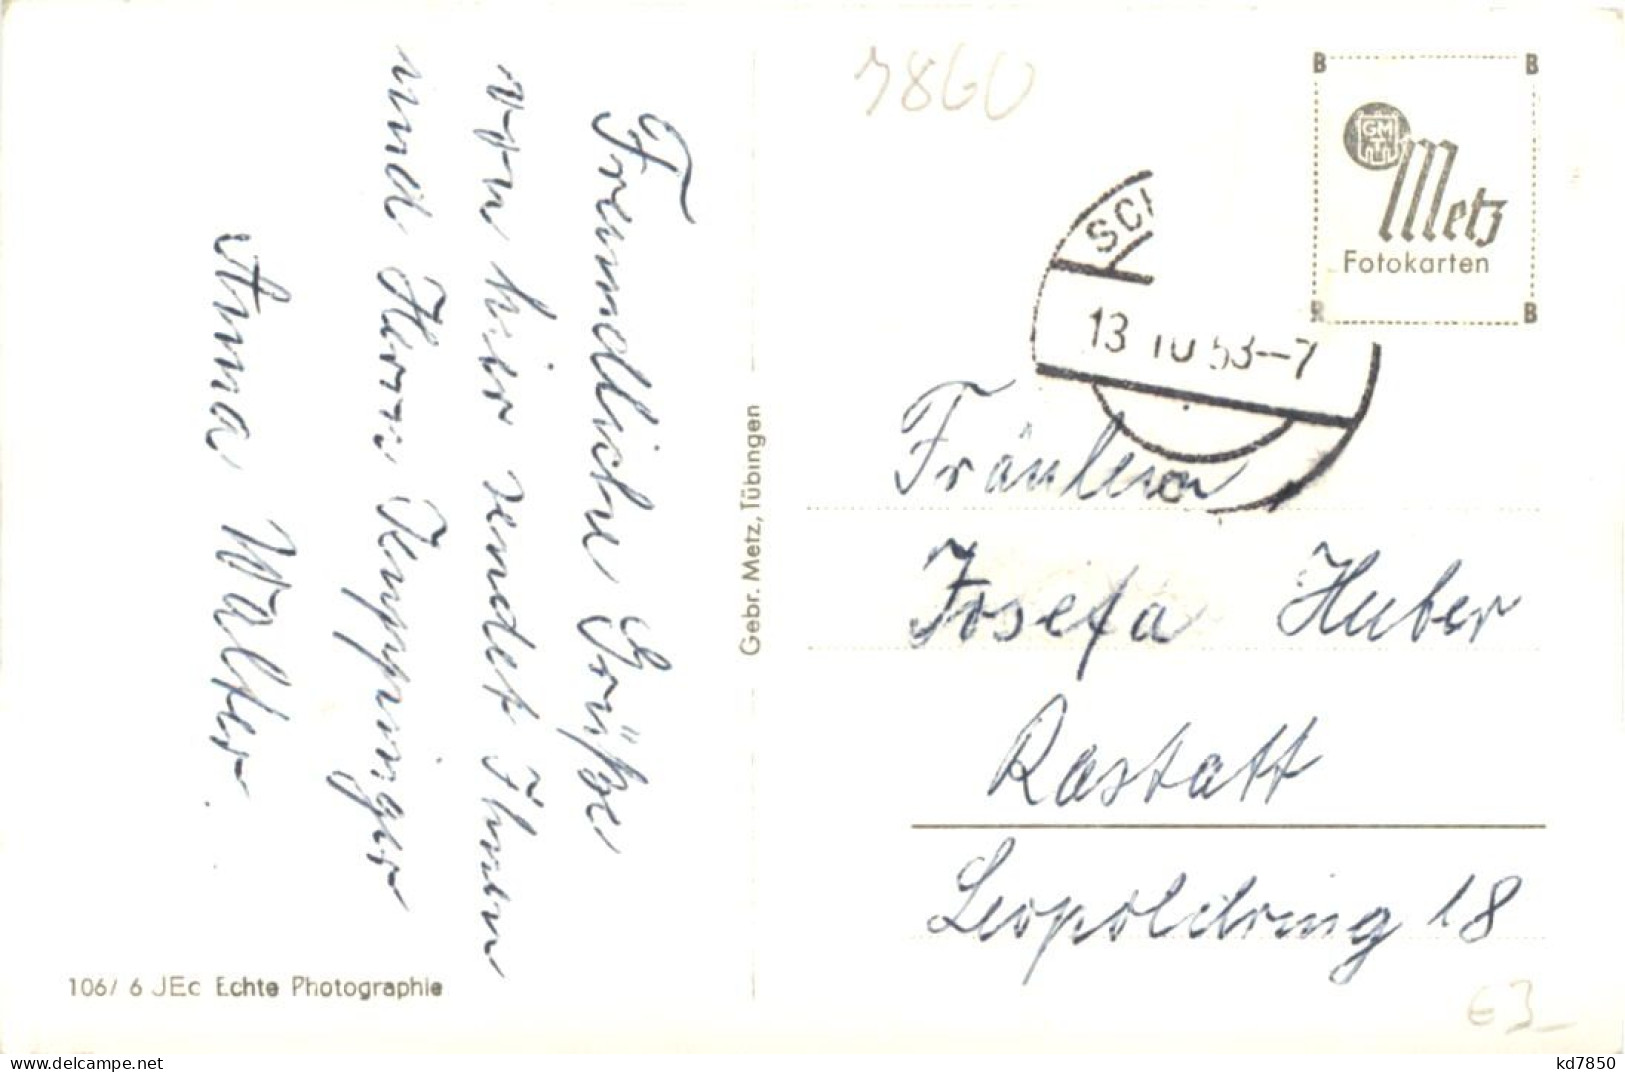 Freundliche Grüße
von hier sendet Ihnen
und Herrn Kuppinger
Anna Walter.
106/ 6 JEc Echte Photographie
Gebr. Metz, Tübingen
7860
B B
GMT
Metz
Fotokarten
B B
SCH
13 10 53-7
Fräulein
Josefa Huber
Rastatt
Leopoldring 18
€3-
www.delcampe.net
kd7850